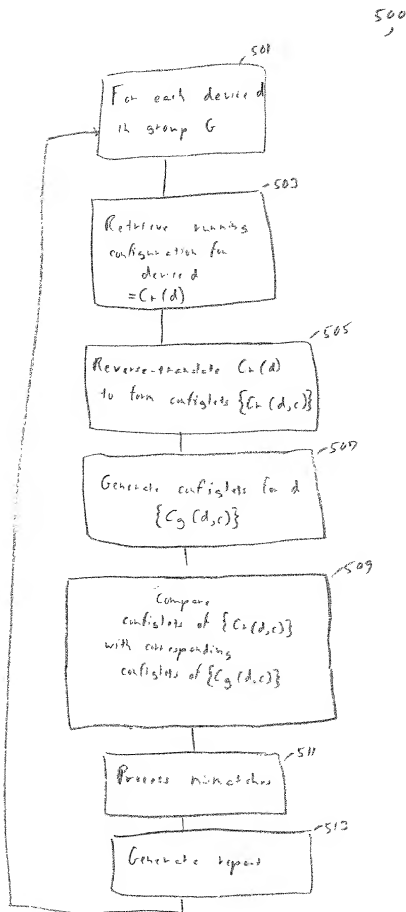 500
501
For each device d
in group G
503
Retrieve running
configuration for
device d
=Cr(d)
505
Reverse-translate Cr(d)
to form configlets {Cr(d,c)}
507
Generate configlets for d
{Cg(d,c)}
509
Compare
configlets of {Cr(d,c)}
with corresponding
configlets of {Cg(d,c)}
511
Process mismatches
513
Generate report